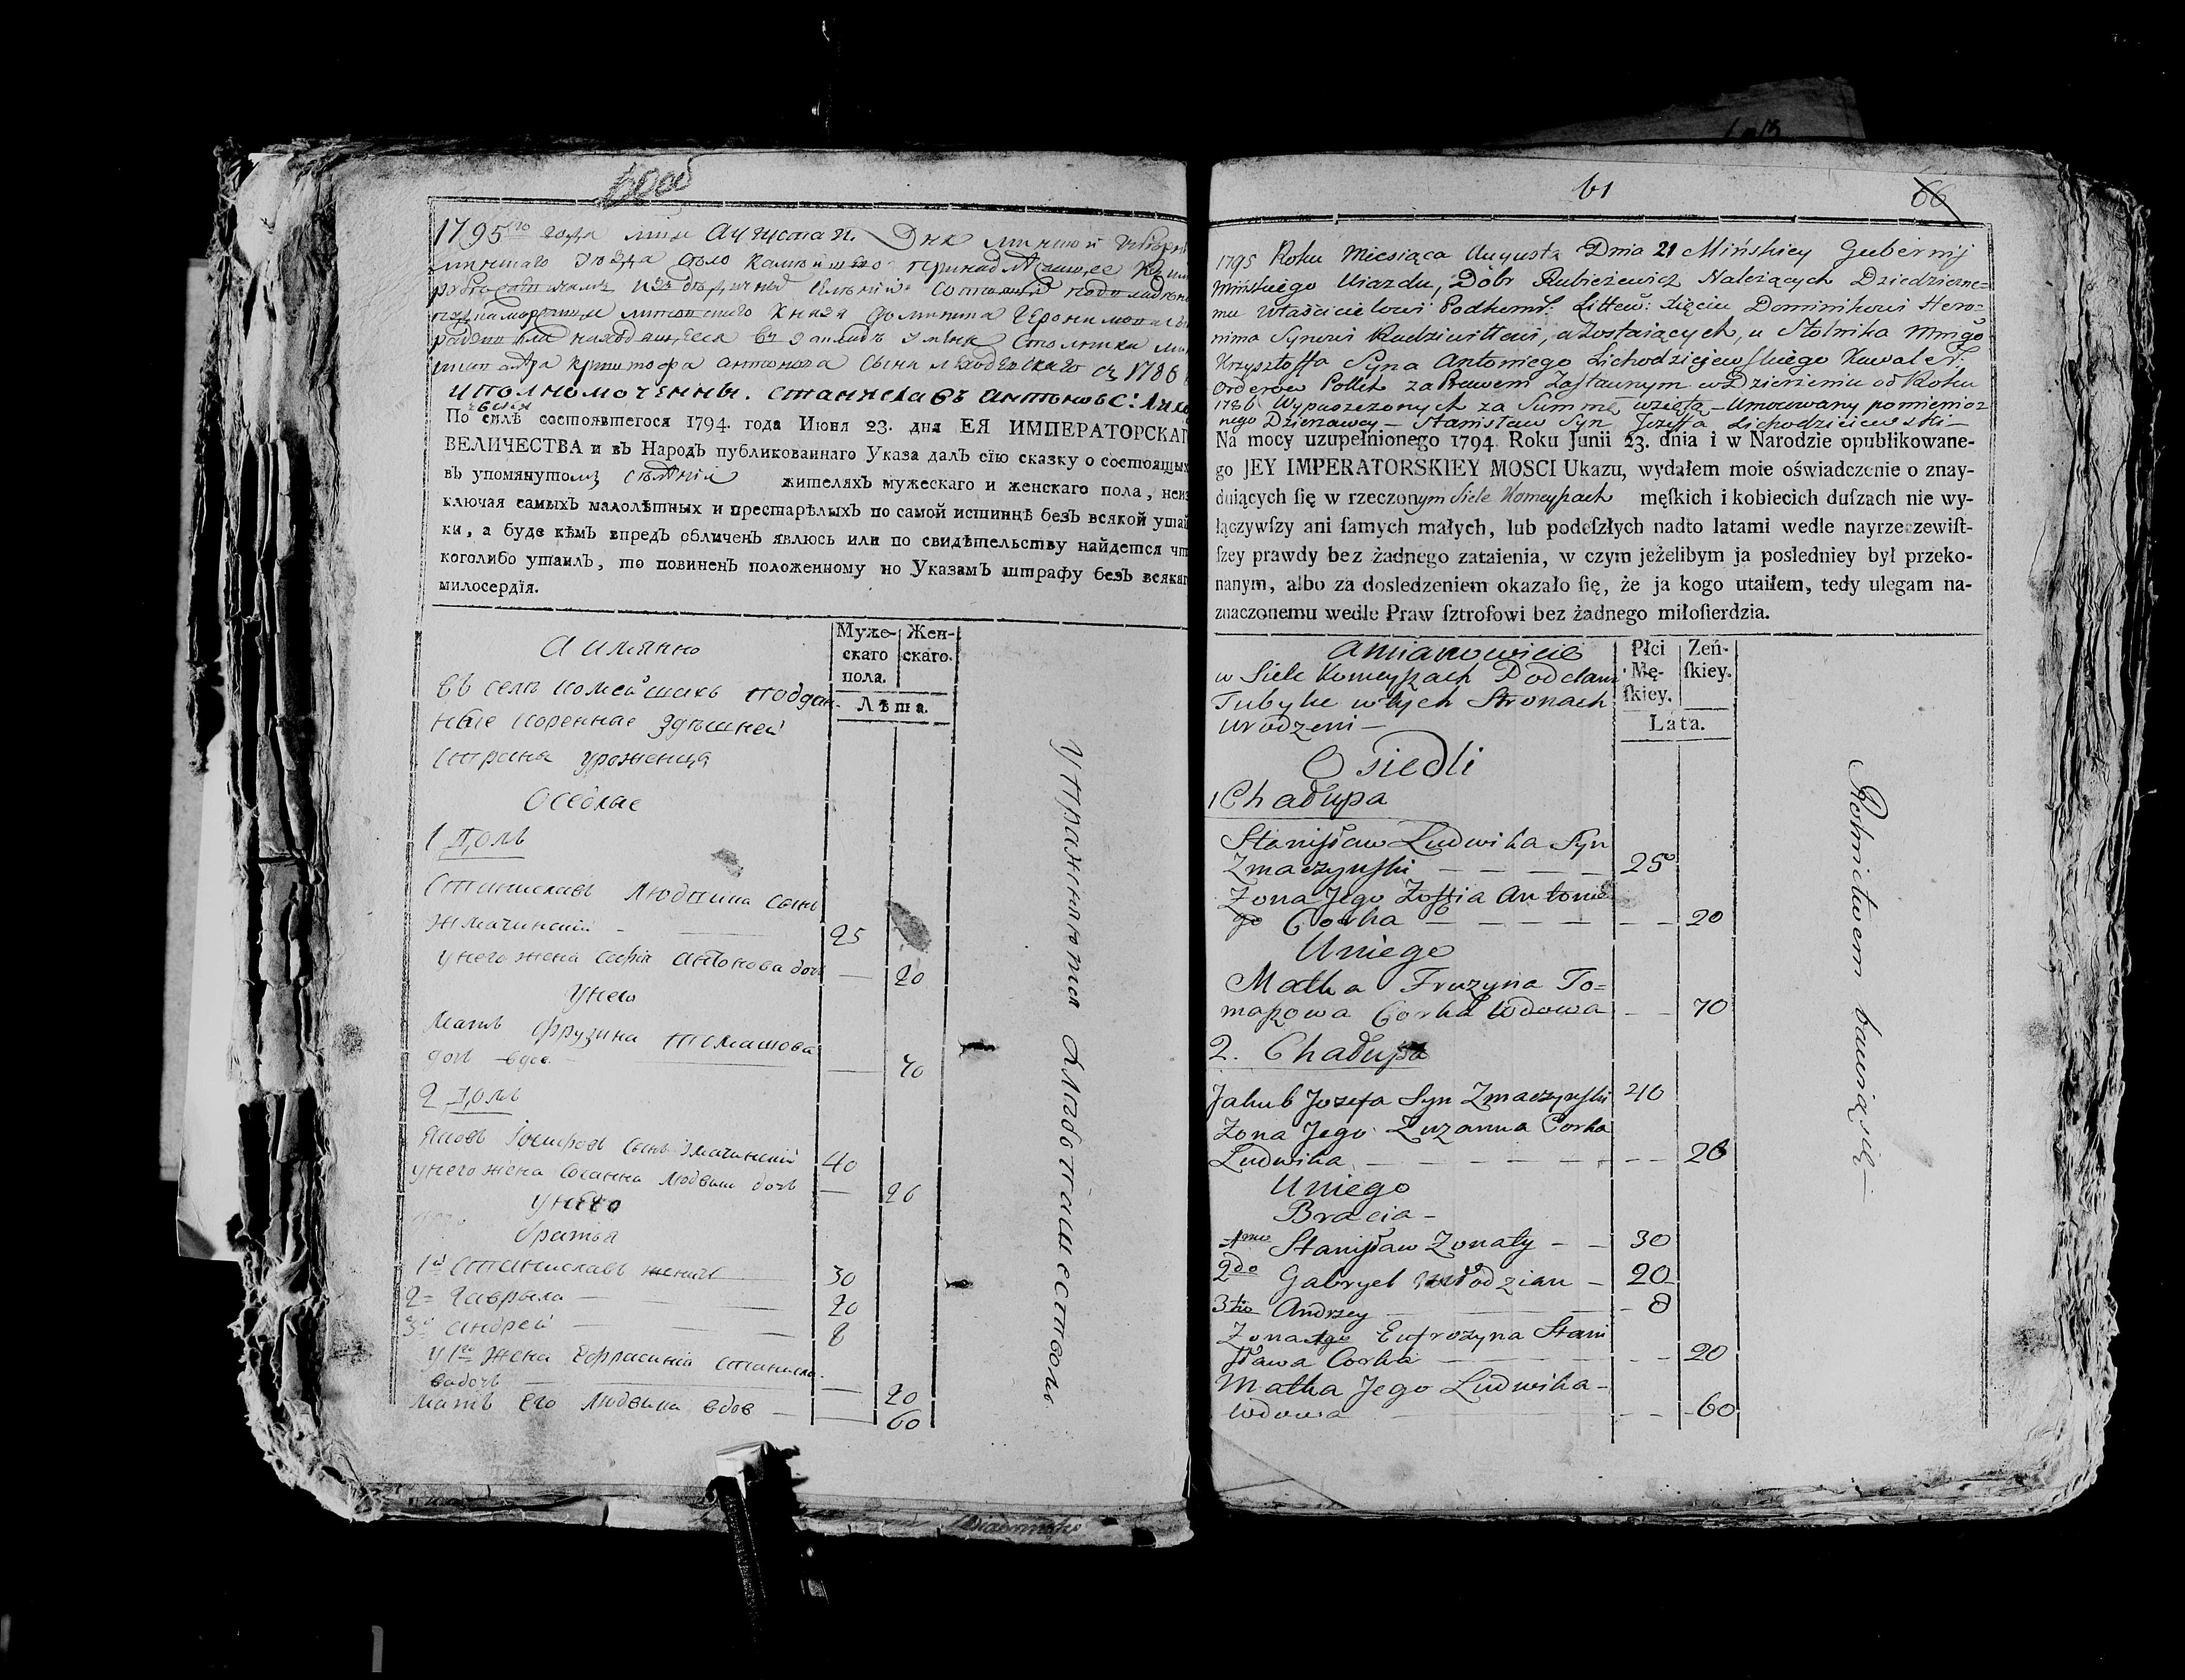 1795го года мца Августа 21. Дня минской губерн
минскаго уезда село принадлежащее
Князя Доминика Геронимова сы
Столника
Криштофа Антонова сына Лиходзіевскаго съ 1786
уполномоченны. Станиславъ Антоновъ С:
По силѣ состоявшегося 1794. года Июня 23. дня ЕЯ ИМПЕРАТОРСКАГ
ВЕЛИЧЕСТВА и въ Народъ публикованнаго Указа далъ сїю сказку о состоящыхъ
въ упомянутомъ селѣніи жителяхъ мужескаго и женскаго пола, неиз
ключая самыхъ малолѣтных и престарѣлыхъ по самой истиннѣ безъ всякой утай
ки, а буде кѣмъ впредъ обличенъ явлюсь или по свидѣтельству найдется чт
коголибо утаилъ, то повиненъ положенному по Указамъ штрафу безъ всякаг
милосердїя.
А имянно
Муже-
скаго
пола.
Жен-
скаго.
Лѣта.
въ селе Комейшахъ поддан-
ные коренные здешней
страны уроженца
Оседлае
1 Домъ
Станиславъ Людвика сынъ
Жмачинский - 25
у него жена Софія Антонова дочь — 20
У него
Мать Фрузина Томашова
дочь вдова — 70
2 Домъ
Яковъ Іосифовъ сынъ Змачинский 40
у него жена Сюзанна Людвики дочь — 26
У него
братья
1й Станиславъ женатъ 30
2й Гаврыла — 20
3й Андрей — 8
у 1го жена Ефрасинія Станисла-
ва дочь — 20
Мать Его Людвика вдов — 60
Упражняются хлебопашествомъ
61
66
1795 Roku Miesiąca Augusta Dnia 21 Mińskiey Gubernij
Mińskiego Uiazdu, Dóbr Rubieżewicz Należących Dziedziczne=
mu Właścicielowi Podkomł: Littew: Xięciu Dominikowi Hero=
nima Synowi Radziwiłłowi, a zostaiących, u Stolnika Mińgo
Krzysztoffa Syna Antoniego Lichodziejewskiego Kawale
Orderow Polsk za Prawem Zastawnym w Dzierżeniu od Roku
1786 Wypuszczonych za Summę wziętą - Umocowany pomienio=
nego Dzierżawcy - Stanisław Syn Jozeffa Lichodzieiewski -
Na mocy uzupełnionego 1794. Roku Junii 23. dnia i w Narodzie opublikowane-
go JEY IMPERATORSKIEY MOSCI Ukazu, wydałem moie oświadczenie o znay-
duiących ſię w rzeczonym Siele Komeyszach męſkich i kobiecich duſzach nie wy-
łączywſzy ani ſamych małych, lub podeſzłych nadto latami wedle nayrzeczewiſt-
ſzey prawdy bez żadnego zataienia, w czym jeżelibym ja posledniey był przeko-
nanym, albo za dosledzeniem okazało ſię, że ja kogo utaiłem, tedy ulegam na-
znaczonemu wedle Praw ſztrofowi bez żadnego miłoſierdzia.
Amianowicie
Płci
Mę-
ſkiey.
Zeń-
ſkiey.
Lata.
w Siele Komeyszach Poddani
Tubylce w tych Stronach
urodzeni -
Osiedli
1 Chałupa
Stanisław Ludwika Syn
Zmaczynski - - - - 25
Zona Jego Zoffia Antonie
go Corka - - - - 20
U niego
Matka Fruzyna To=
maszowa Corka Wdowa - - 70
2. Chałupa
Jakub Jozefa Syn Zmaczynski 40
Zona Jego Zuzanna Corka
Ludwika - - - - 26
U niego
Bracia -
1mo Stanisław Zonaty - - 30
2do Gabryel Młodzian - 20
3tio Andrzey - 8
Zona 1go Eufrozyna Stani
sława Corka - - 20
Matka Jego Ludwika -
Wdowa - - 60
Rolnictwem bawią się -